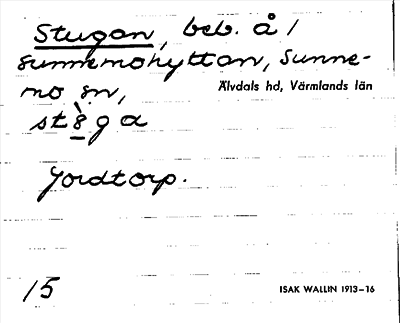 Stugan, beb. å /
Sunnemohyttan, Sunne-
mo sn, Älvdals hd, Värmlands län
st8̀ga
Jordtorp.
15 ISAK WALLIN 1913–16